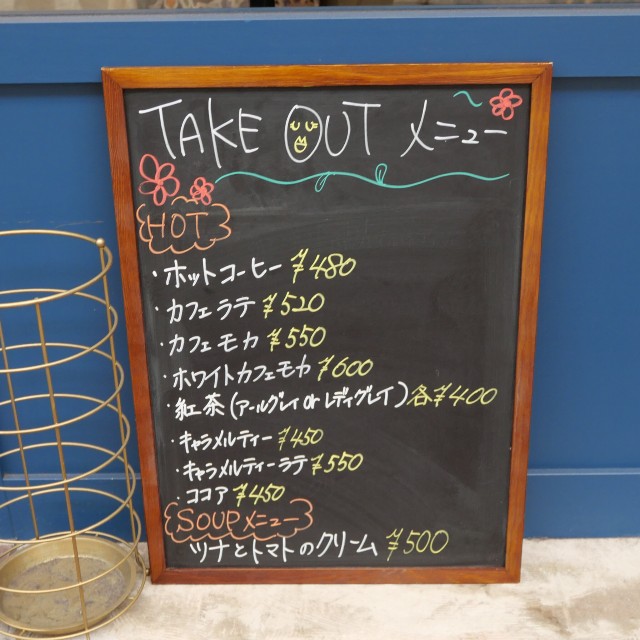 TAKE OUT メニュー
HOT
・ホットコーヒー ¥480
・カフェラテ ¥520
・カフェモカ ¥550
・ホワイトカフェモカ ¥600
・紅茶(アールグレイ or レディグレイ) 各¥400
・キャラメルティー ¥450
・キャラメルティーラテ ¥550
・ココア ¥450
SOUPメニュー
ツナとトマトのクリーム ¥500